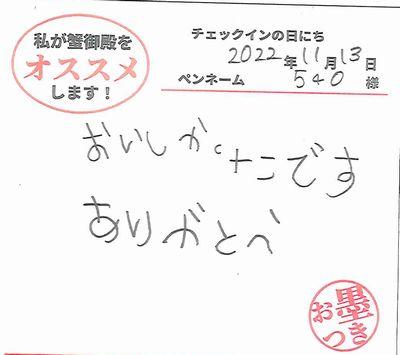 私が蟹御殿を
オススメ
します！
チェックインの日にち
2022年11月13日
ペンネーム 540 様
おいしかったです
ありがとう
お墨つき